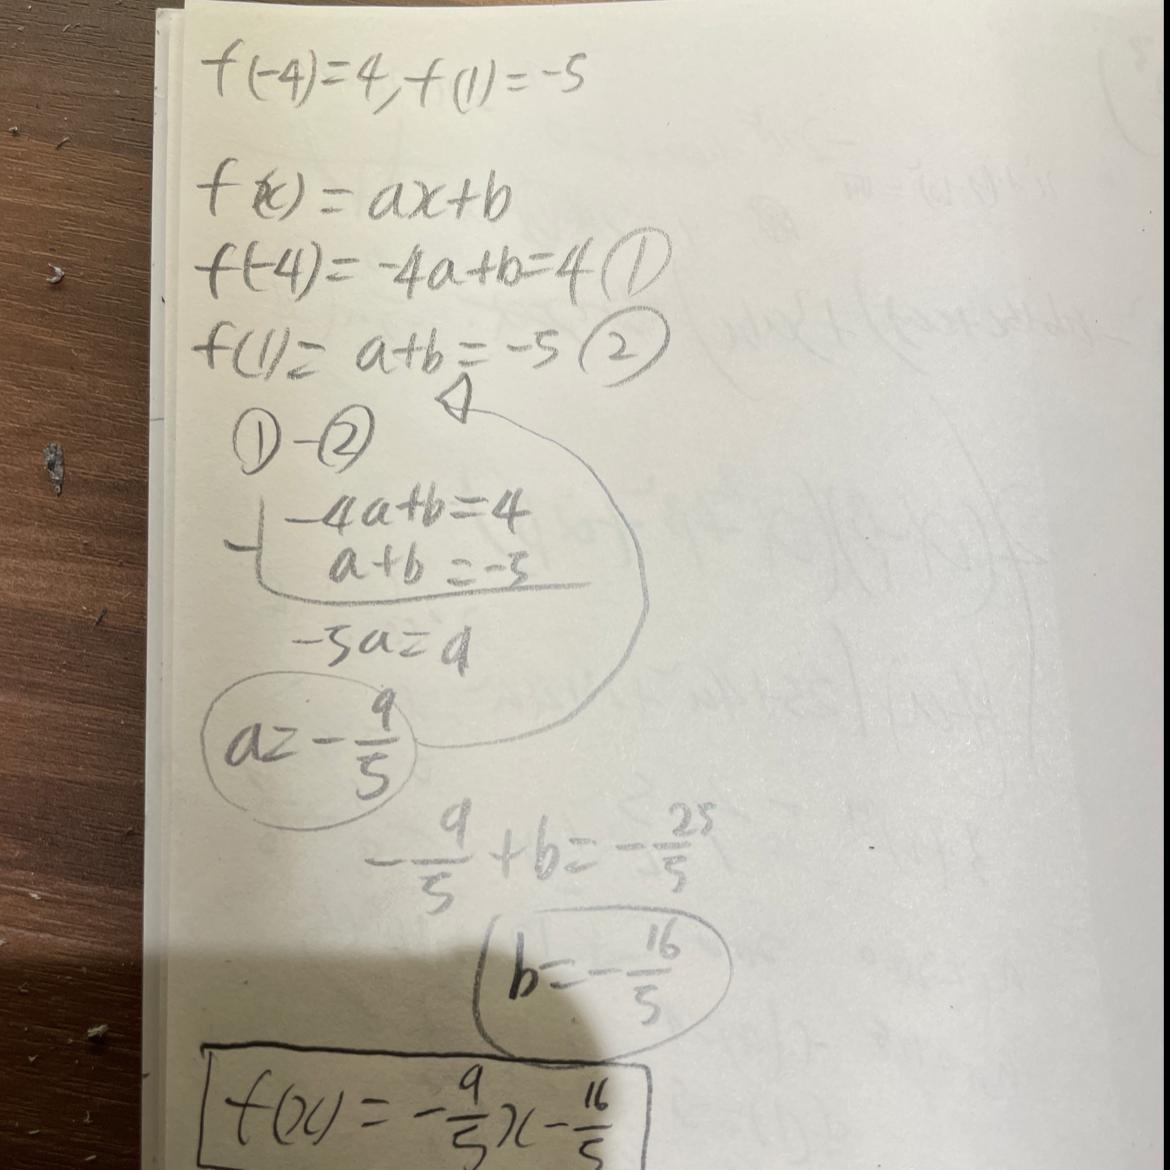 f(-4)=4, f(1)=-5
f(x)=ax+b
f(-4)=-4a+b=4 ①
f(1)=a+b=-5 ②
①-②
-4a+b=4
- a+b=-5
-5a=9
a=-9/5
-9/5+b=-25/5
b=-16/5
f(x)=-9/5x-16/5